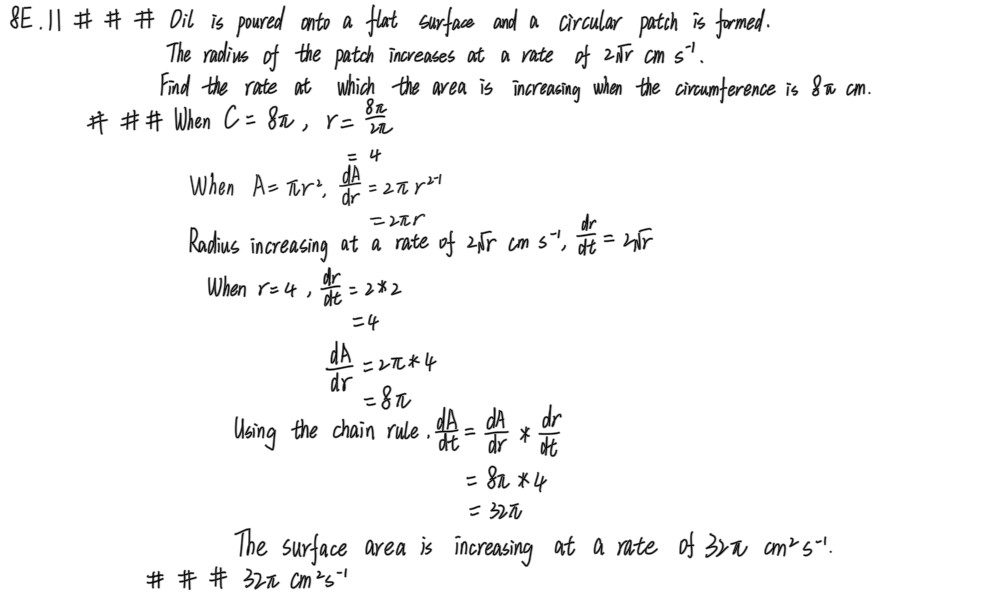 8E.11 # # # Oil is poured onto a flat surface and a circular patch is formed.
The radius of the patch increases at a rate of 2√r cm s⁻¹.
Find the rate at which the area is increasing when the circumference is 8π cm.
# # # When C = 8π, r = 8π/2π
= 4
When A = πr², dA/dr = 2πr²⁻¹
= 2πr
Radius increasing at a rate of 2√r cm s⁻¹, dr/dt = 2√r
When r = 4, dr/dt = 2*2
= 4
dA/dr = 2π*4
= 8π
Using the chain rule. dA/dt = dA/dr * dr/dt
= 8π * 4
= 32π
The surface area is increasing at a rate of 32π cm² s⁻¹.
# # # 32π cm²s⁻¹